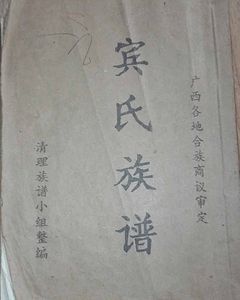 广西各地合族商议审定
宾氏族谱
清理族谱小组整编